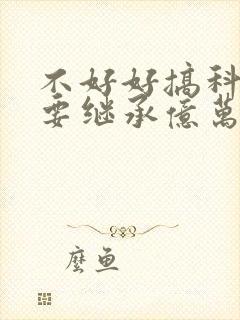 不好好搞科
要继承億萬
麽鱼